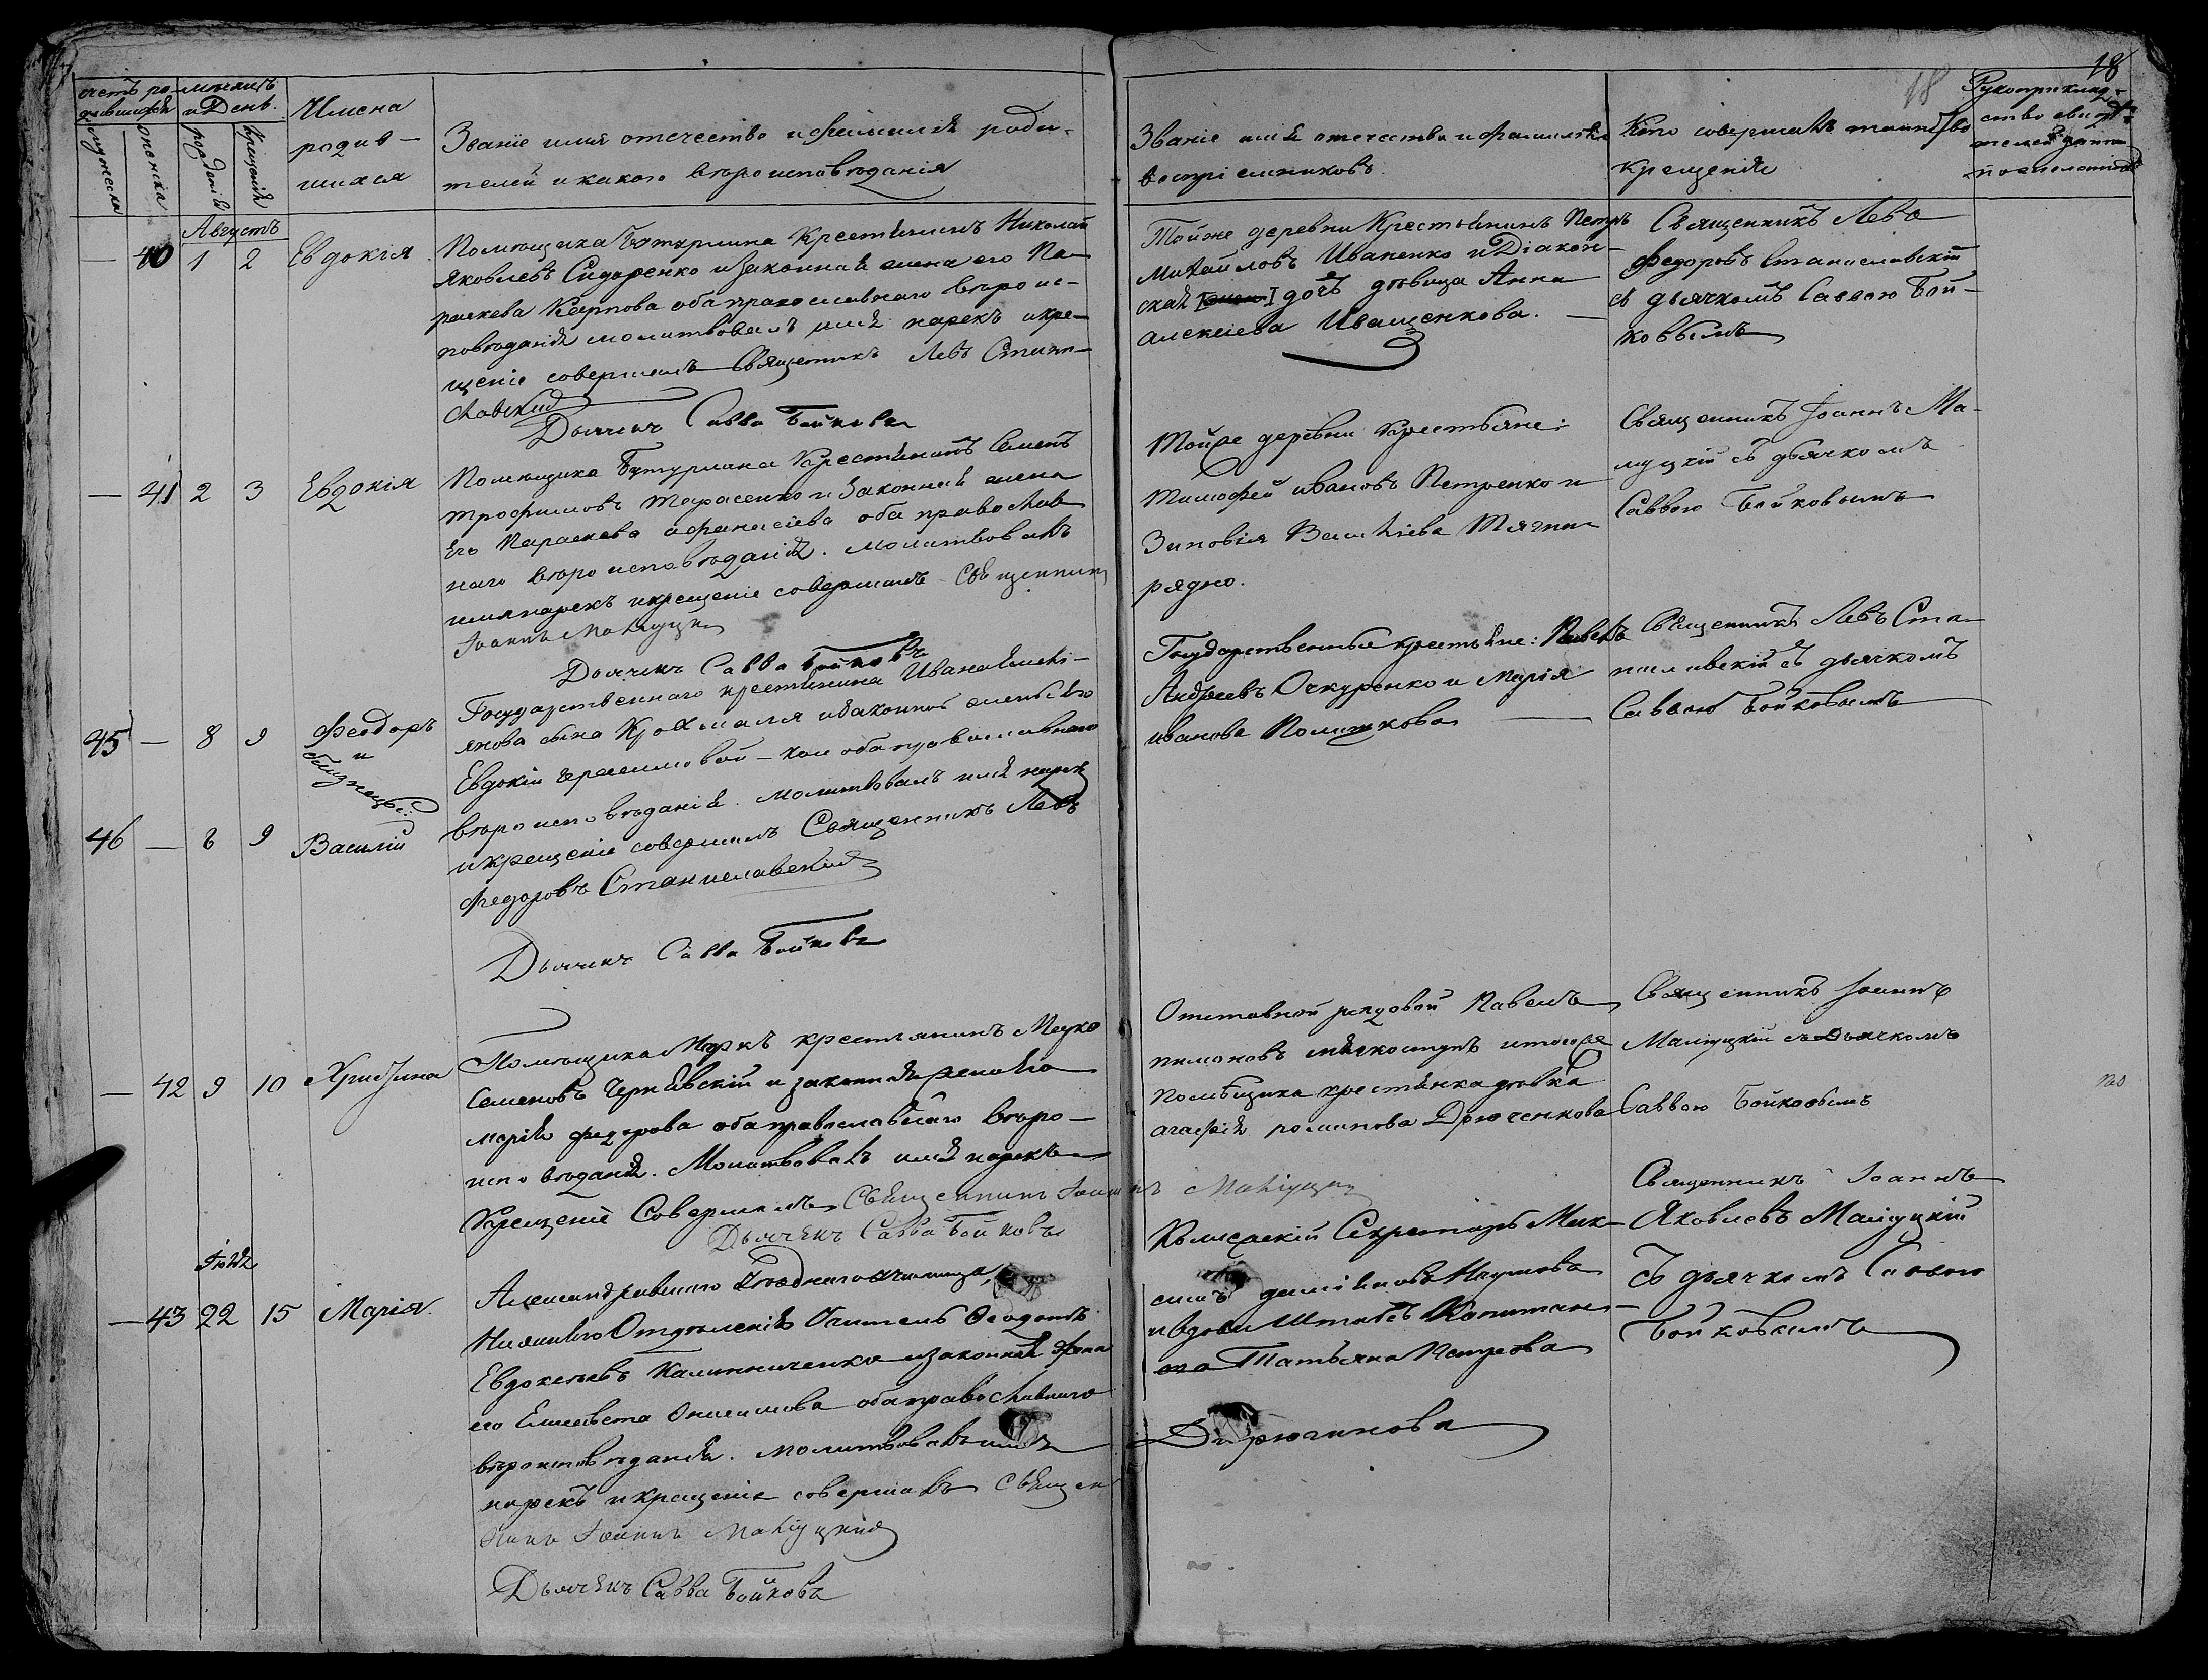 18
18
Счетъ ро-
дившихся
Мѣсяцъ
и День.
мужеска
женска
рожденія
крещенія
Имена
родив-
шихся
Званіе имя отечество и фамилія роди-
телей и какого вѣроисповѣданія
Званіе имя отечество и фамилія
воспріемниковъ.
Кто совершалъ таинство
крещенія
Рукоприклад-
ство свидѣ-
телей
Августъ
— 40 1 2 Евдокія
Помѣщика Бутурлина Крестьянинъ Николай
Яковлевъ Сидоренко и законная жена его Па-
раскева Карпова оба православнаго вѣроис-
повѣданія молитвовалъ имя нарекъ и кре-
щеніе совершалъ Священникъ Левъ Стани-
славскій
Дьячекъ Савва Бойковъ
Тойже деревни Крестьянинъ Петръ
Михайловъ Иваненко и Діакон-
ская дочь дѣвица Анна
Алексіева Иващенкова.
Священникъ Левъ
Федоровъ Станиславскій
съ дьячкомъ Саввою Бой-
ковымъ
— 41 2 3 Евдокія
Помѣщика Бутурлина Крестьянинъ Семенъ
Трофимовъ Тарасенко и законная жена
его Параскева Афанасіева оба православ
наго вѣроисповѣданія. Молитвовалъ
имя нарекъ и крещеніе совершалъ Священникъ
Іоаннъ Малѣуцкій
Дьячекъ Савва Бойковъ
Тойже деревни Крестьяне:
Тимофей Ивановъ Петренко и
Зиновія Василіева Тягни
рядно.
Священникъ Іоаннъ Ма-
луцкій съ дьячкомъ
Саввою Бойковымъ
45 — 8 9 Феодоръ
и
близнецы:
46 — 8 9 Василій
Государственнаго крестьянина Ивана Емелі-
янова сына Крохмаля и законной жены его
Евдокіи Герасимовой — кои оба православнаго
вѣроисповѣданія. Молитвовалъ имя нарекъ
и крещеніе совершилъ Священникъ Левъ
Федоровъ Станиславскій
Дьячекъ Савва Бойковъ
Государственные крестьяне: Павелъ
Андреевъ Очкуренко и Марія
Иванова
Священникъ Левъ Ста-
ниславскій съ дьячкомъ
Саввою Бойковымъ
— 42 9 10 Христина
Помѣщика Маркъ крестьянинъ
Семеновъ Чернявскій и законная жена его
Марія Федорова оба православнаго вѣро-
исповѣданія. Молитвовалъ имя нарекъ
Крещеніе Совершалъ Священникъ Іоаннъ Маліуцкій
Дьячекъ Савва Бойковъ
Отставной рядовой Павелъ
Пимоновъ и тогоже
помѣщика крестьянка дѣвка
Агафія Романова Дрюченкова
Священникъ Іоаннъ
Маліуцкій съ Дьячкомъ
Саввою Бойковымъ
Іюля
— 43 22 15 Марія.
Александравскаго Уѣзднаго Училища
Нижняго Отдѣленія Учитель Феодотъ
Евдокимовъ Калиниченко и законная жена
его Елисавета Онисимова оба православнаго
вѣроисповѣданія. Молитвовалъ имя
нарекъ и крещеніе совершалъ Священ
никъ Іоаннъ Маліуцкій
Дьячекъ Савва Бойковъ
Колежскій Секретарь Мак-
симъ Даміановъ Наумовъ
и вдова Штабсъ Капитан-
ша Татьяна Петрова
Дирюгинова
Священникъ Іоаннъ
Яковлевъ Маліуцкій
съ дьячкомъ Саввою
Бойковымъ